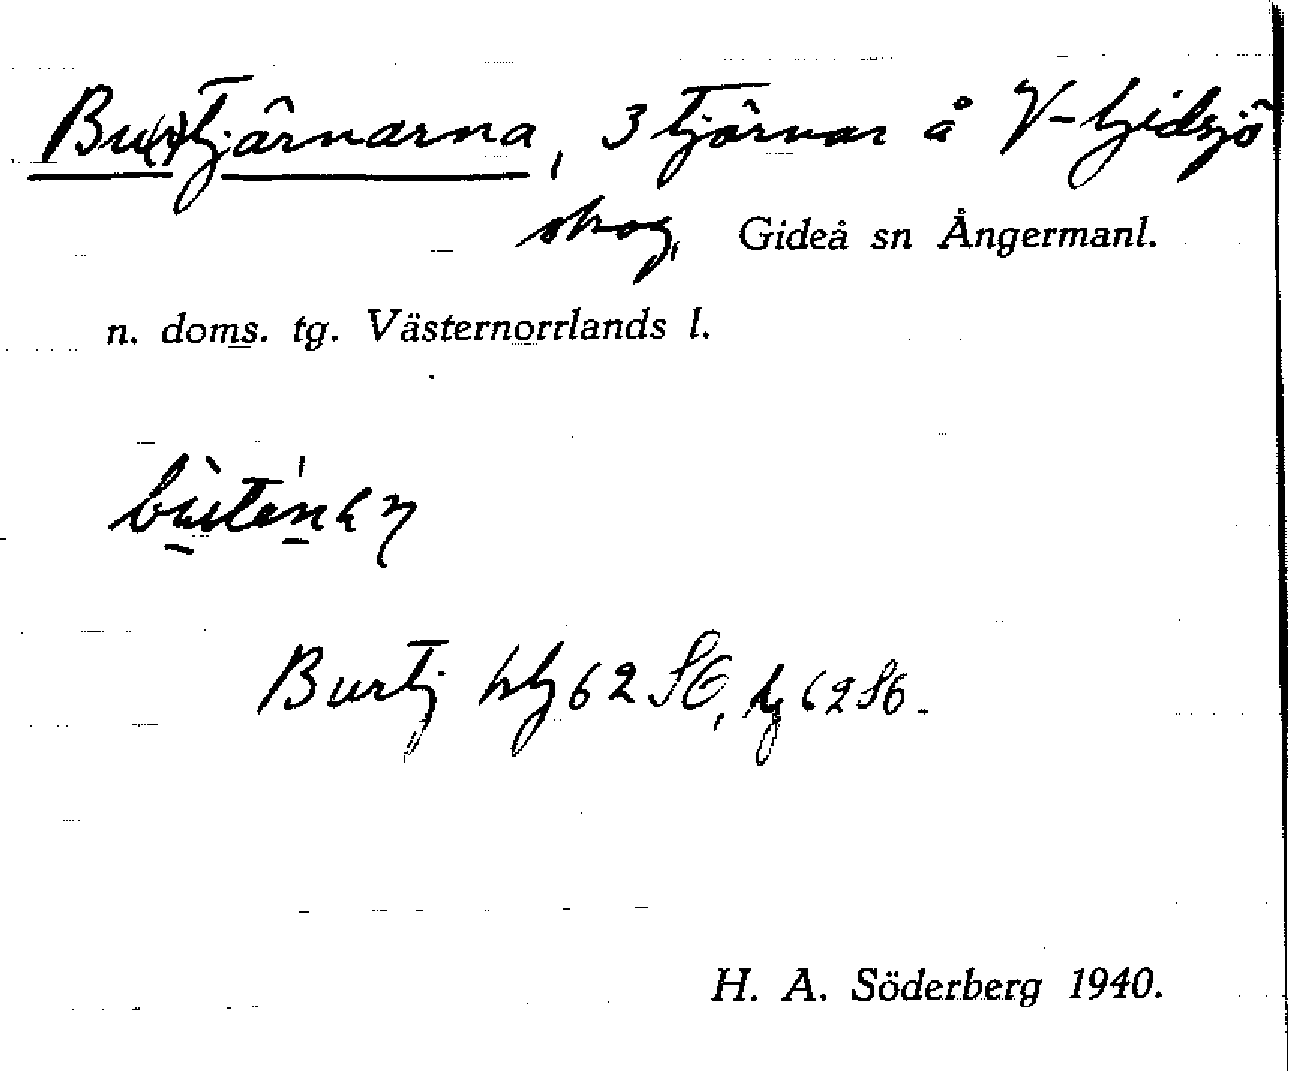 Bu(r)tjärnarna, 3 tjärnar å V-Gidsjö
skog, Gideå sn Ångermanl.
n. doms. tg. Västernorrlands l.
Burtj hlj 62 SO, lj 62 SO.
H. A. Söderberg 1940.